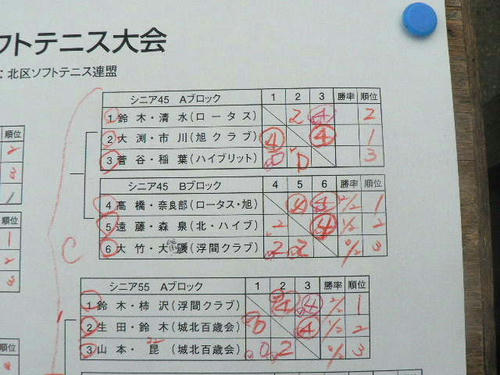 フトテニス大会
：北区ソフトテニス連盟
順位
2
3
1
シニア45 Aブロック 1 2 3 勝率 順位
1 鈴木・清水(ロータス) 2 4 2
2 大渕・市川(旭クラブ) 4 4 1
3 菅谷・稲葉(ハイブリット) 0 0 3
順位
1
2
3
シニア45 Bブロック 4 5 6 勝率 順位
4 高橋・奈良部(ロータス・旭) 4 4 2/2 1
5 遠藤・森泉(北・ハイブ) 2 4 1/2 2
6 大竹・大 (浮間クラブ) 2 2 0/2 3
C
シニア55 Aブロック 1 2 3 勝率 順位
1 鈴木・柿沢(浮間クラブ) 4 4 2/2 1
2 生田・鈴木(城北百歳会) 0 4 1/2 2
3 山本・昆 (城北百歳会) 0 2 0/2 3
順位